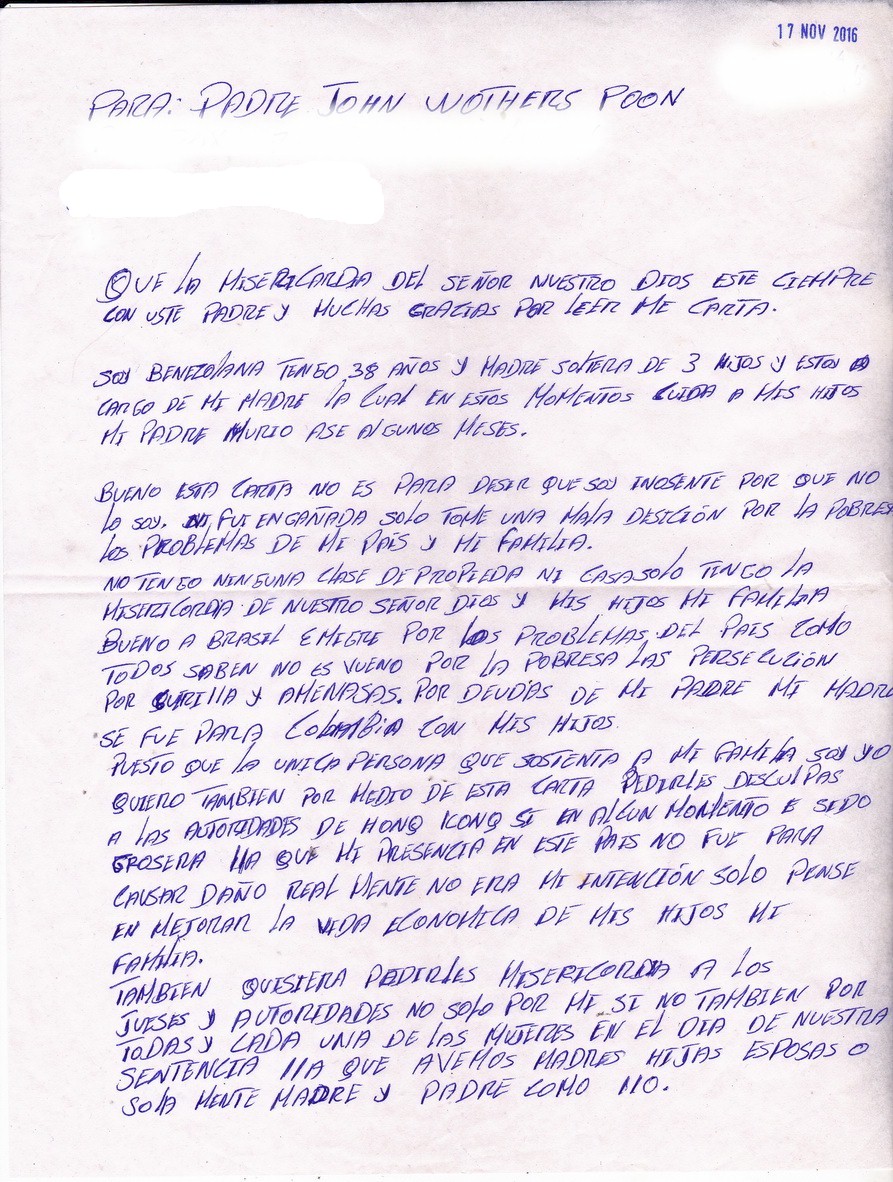 17 NOV 2016
PARA: PADRE JOHN WOTHERS POON
QUE LA MISERICARDIA DEL SEÑOR NUESTRO DIOS ESTE CIEMPRE
CON USTE PADRE Y MUCHAS GRACIAS POR LEER ME CARTA.
SOY BENEZOLANA TENGO 38 AÑOS Y MADRE SOLTERA DE 3 HIJOS Y ESTOY A
CARGO DE MI MADRE LA CUAL EN ESTOS MOMENTOS CUIDA A MIS HIJOS
MI PADRE MURIO ASE ALGUNOS MESES.
BUENO ESTA CARTA NO ES PARA DESIR QUE SOY INOSENTE POR QUE NO
LO SOY. NI FUI ENGAÑADA SOLO TOME UNA MALA DESICIÓN POR LA POBRESA
LOS PROBLEMAS DE MI PAÍS Y MI FAMILIA.
NO TENGO NINGUNA CLASE DE PROPIEDA NI CASA SOLO TENGO LA
MISERICORDIA DE NUESTRO SEÑOR DIOS Y MIS HIJOS MI FAMILIA
BUENO A BRASIL EMIGRE POR LOS PROBLEMAS DEL PAIS COMO
TODOS SABEN NO ES VUENO POR LA POBRESA LAS PERSECUCIÓN
POR GURILLA Y AMENASAS. POR DEUDAS DE MI PADRE MI MADRE
SE FUE PARA COLOMBIA CON MIS HIJOS.
PUESTO QUE LA UNICA PERSONA QUE SOSTENTA A MI FAMILA SOY YO
QUIERO TAMBIEN POR MEDIO DE ESTA CARTA PEDIRLES DESCULPAS
A LAS AUTORIDADES DE HONQ KONQ SI EN ALGUN MOMENTO E SIDO
GROSERA LLA QUE MI PRESENCIA EN ESTE PAIS NO FUE PARA
CAUSAR DAÑO REAL MENTE NO ERA MI INTENCIÓN SOLO PENSE
EN MEJORAR LA VIDA ECONOMICA DE MIS HIJOS MI
FAMILIA.
TAMBIEN QUISIERA PEDIRLES MISERICORDIA A LOS
JUESES Y AUTORIDADES NO SOLO POR MI SI NO TAMBIEN POR
TODAS Y CADA UNA DE LAS MUJERES EN EL DIA DE NUESTRA
SENTENCIA LLA QUE AVEMOS MADRES HIJAS ESPOSAS O
SOLA MENTE MADRE Y PADRE COMO LLO.